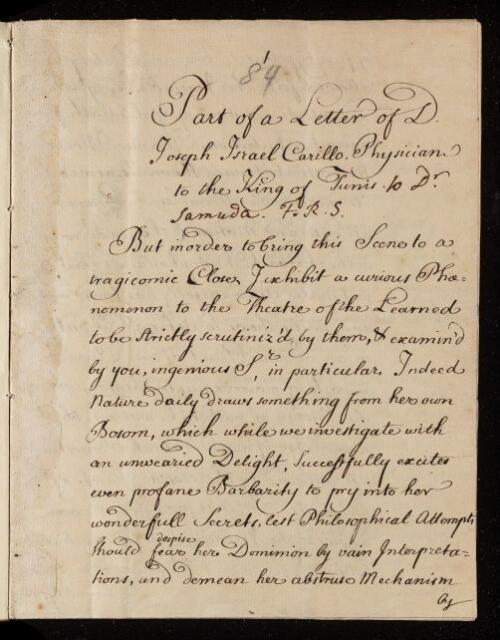 1
84
Part of a Letter of D.
Joseph Israel Carillo. Physician
to the King of Tunis to Dr
Samuda. F. R. S.
But in order to bring this Scene to a
tragicomic Close, I exhibit a curious Phæ=
nomenon to the Theatre of the Learned
to be strictly scrutiniz'd by them, & examin'd
by you, ingenious Sr, in particular. Indeed
Nature daily draws something from her own
Bosom, which while we investigate with
an unwearied Delight, Successfully excites
even profane Barbarity to pry into her
wonderfull Secrets, lest Philosophical Attempts
despise
should fear her Dominion by vain Interpreta=
tions, and demean her abstruse Mechanism
by